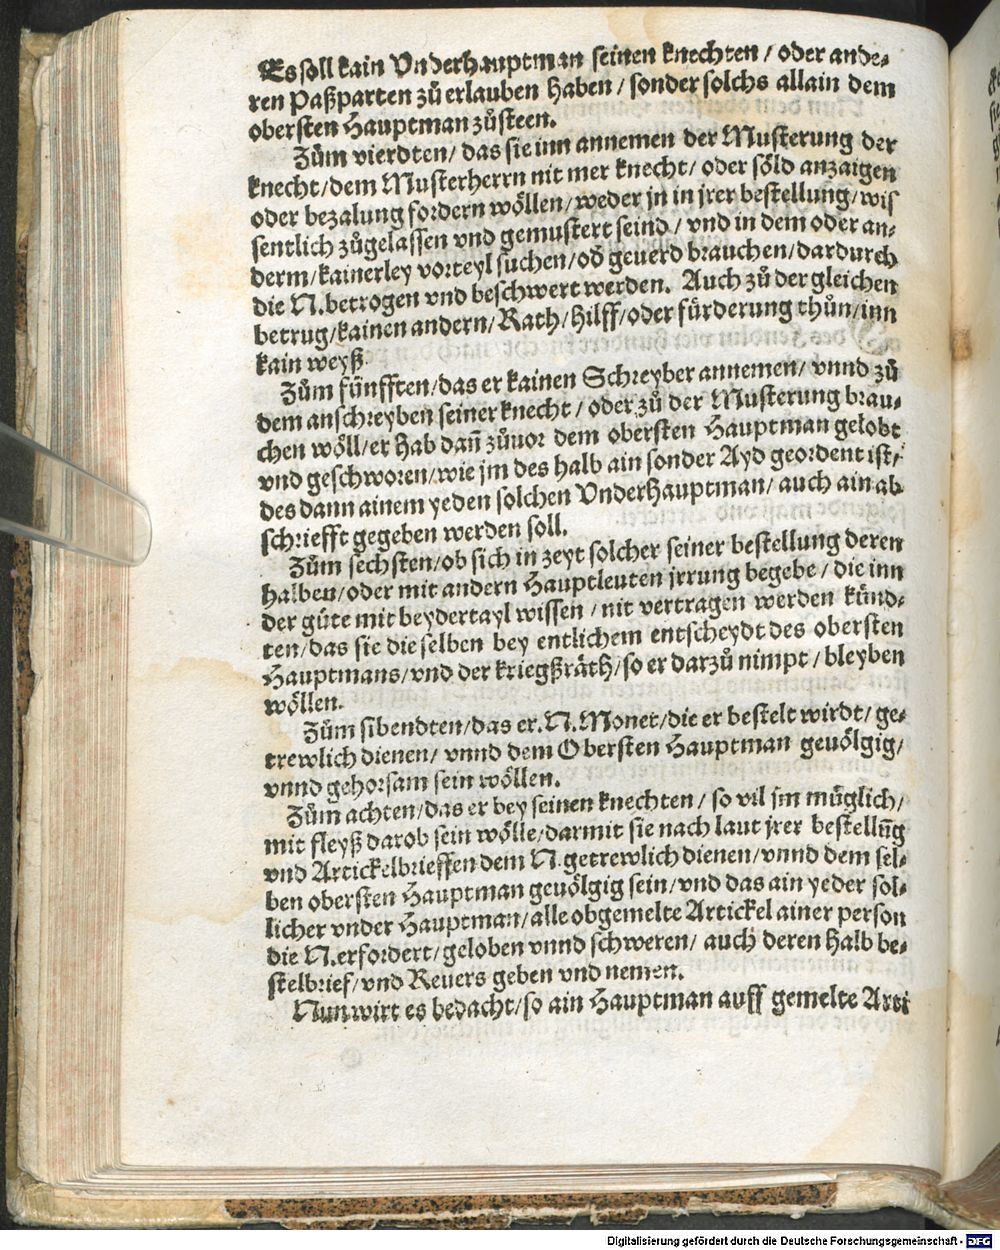 Es soll kain Vnderhauptman seinen knechten / oder ande⸗
ren Paßparten zů erlauben haben / sonder solchs allain dem
obersten Hauptman zůsteen.
Zům vierdten / das sie inn annemen der Musterung der
knecht / dem Musterherrn nit mer knecht / oder söld anzaigen
oder bezalung fordern wöllen / weder jn in jrer bestellung / wis
sentlich zůgelassen vnd gemustert seind / vnd in dem oder an⸗
derm / kainerley vorteyl suchen / od̕ geuerd brauchen / dardurch
die N. betrogen vnd beschwert werden. Auch zů der gleichen
betrug / kainen andern / Rath / Hilff / oder fürderung thůn / inn
kain weyß.
Zům fünfften / das er kainen Schreyber annemen / vnnd zů
dem anschreyben seiner knecht / oder zů der Musterung brau⸗
chen wöll / er hab dañ zůuor dem obersten Hauptman gelobt
vnd geschworen / wie jm des halb ain sonder Ayd geordent ist /
des dann ainem yeden solchen Vnderhauptman / auch ain ab
schriefft gegeben werden soll.
Zům sechsten / ob sich in zeyt solcher seiner bestellung deren
halben / oder mit andern Hauptleuten jrrung begebe / die inn
der güte mit beydertayl wissen / nit vertragen werden künd⸗
ten / das sie die selben bey entlichem entscheydt des obersten
Hauptmans / vnd der kriegßräth / so er darzů nimpt / bleyben
wöllen.
Zům sibendten / das er. N. Monet / die er bestelt wirdt / ge⸗
trewlich dienen / vnnd dem Obersten Hauptman geuölgig /
vnnd gehorsam sein wöllen.
Zům achten / das er bey seinen knechten / so vil jm müglich /
mit fleyß darob sein wölle / darmit sie nach laut jrer bestellũg
vnd Artickelbrieffen dem N. getrewlich dienen / vnnd dem sel⸗
ben obersten Hauptman geuölgig sein / vnd das ain yeder sol⸗
licher vnder Hauptman / alle obgemelte Artickel ainer person
die N. erfordert / geloben vnnd schweren / auch deren halb be⸗
stelbrief / vnd Reuers geben vnd nemen.
Nun wirt es bedacht / so ain Hauptman auff gemelte Arti
Digitalisierung gefördert durch die Deutsche Forschungsgemeinschaft - DFG